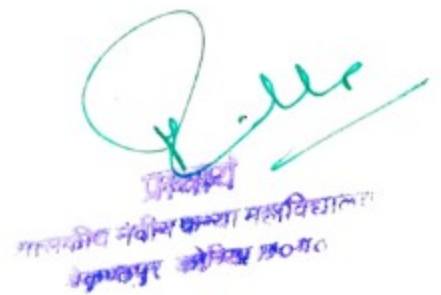 प्राचार्य
शासकीय नवीन कन्या महाविद्यालय
बैकुण्ठपुर कोरिया छ०ग०